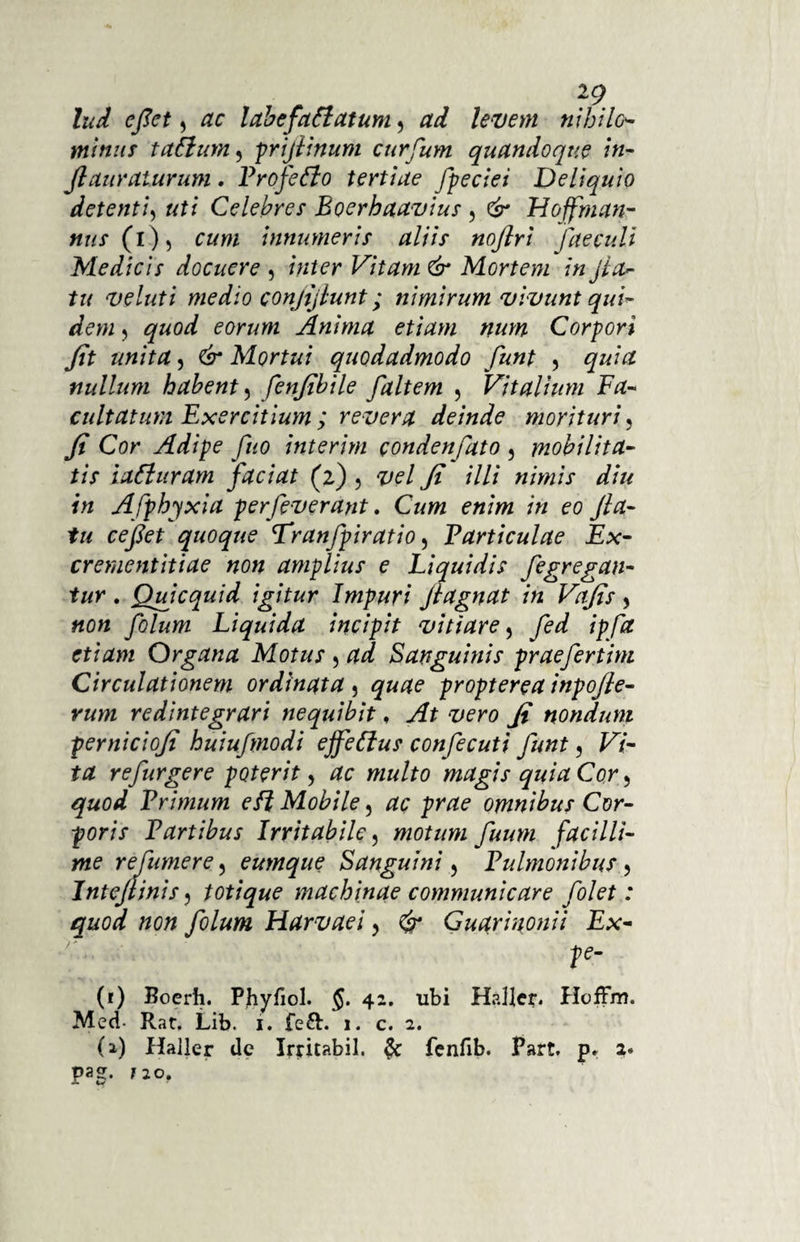 29
lud ceſſet, ac labefactatum, ad levem nihilo-
minus tactum, priſtinum curſum quandoque in-
ſtauraturum. Profecto tertiae ſpeciei Deliquio
detenti, uti Celebres Boerhaavius, & Hoffman-
nus (1), cum innumeris aliis noſtri ſaeculi
Medicis docuere, inter Vitam & Mortem in ſta-
tu veluti medio conſiſtunt; nimirum vivunt qui-
dem, quod eorum Anima etiam num Corpori
ſit unita, & Mortui quodadmodo ſunt, quia
nullum habent, ſenſibile ſaltem, Vitalium Fa-
cultatum Exercitium; revera deinde morituri,
ſi Cor Adipe ſuo interim condenſato, mobilita-
tis iacturam faciat (2), vel ſi illi nimis diu
in Aſphyxia perſeverant. Cum enim in eo ſta-
tu ceſſet quoque Tranſpiratio, Particulae Ex-
crementitiae non amplius e Liquidis ſegregan-
tur. Quicquid igitur Impuri ſtagnat in Vaſis,
non ſolum Liquida incipit vitiare, ſed ipſa
etiam Organa Motus, ad Sanguinis praeſertim
Circulationem ordinata, quae propterea inpoſte-
rum redintegrari nequibit. At vero ſi nondum
pernicioſi huiuſmodi effectus conſecuti ſunt, Vi-
ta reſurgere poterit, ac multo magis quia Cor,
quod Primum eſt Mobile, ac prae omnibus Cor-
poris Partibus Irritabile, motum ſuum facilli-
me reſumere, eumque Sanguini, Pulmonibus,
Inteſtinis, totique machinae communicare ſolet:
quod non ſolum Harvaei, & Guarinonii Ex-
pe-
(1) Boerh. Phyſiol. §. 42. ubi Haller. Hoffm.
Med. Rat. Lib. 1. ſect. 1. c. 2.
(2) Haller de Irritabil. & ſenſib. Part. p. 2.
pag. 120.